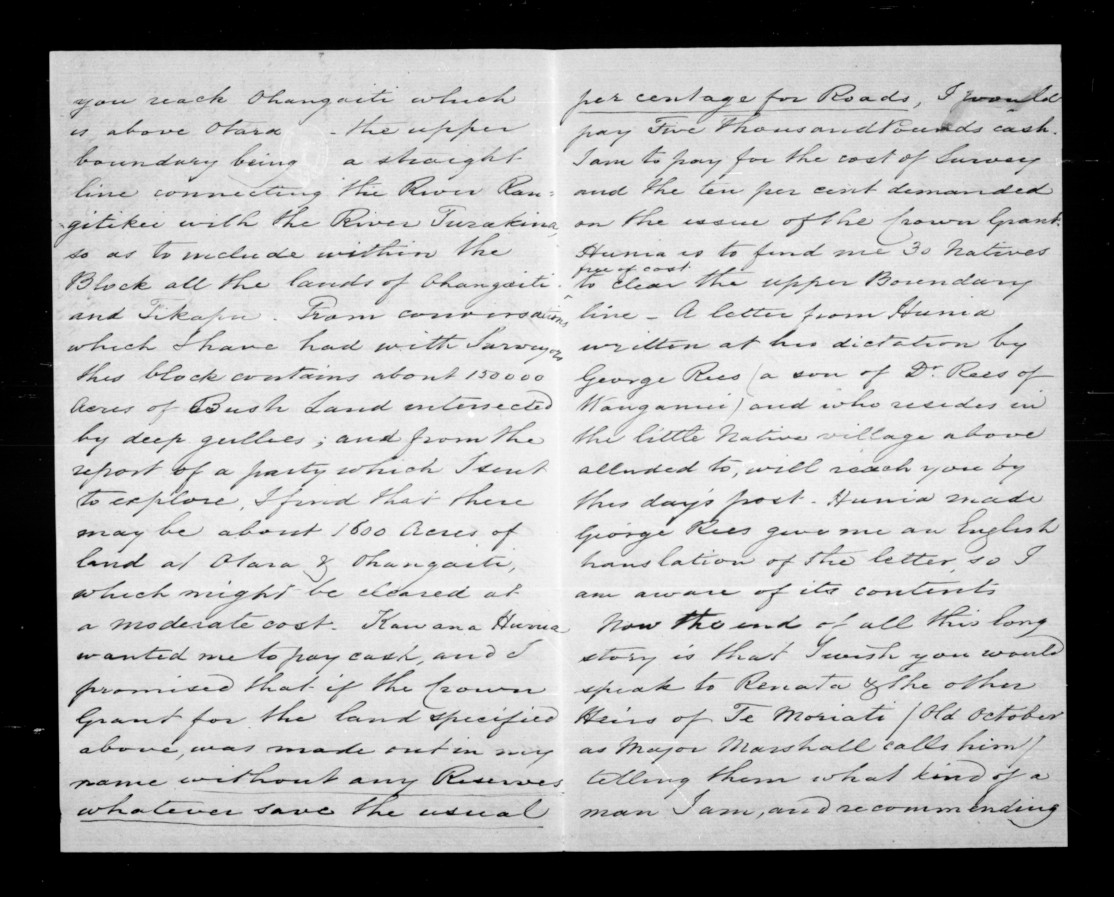 you reach Ohangaiti which
is above Otara - the upper
boundary being a straight
line connecting the River Ran=
gitikei with the River Turakina,
so as to include within the
Block all the lands of Ohangaiti
and Tikapu. From conversations
which I have had with Surveyors
this block contains about 150000
acres of Bush Land intersected
by deep gullies; and from the
report of a party which I sent
to explore, I find that there
may be about 1600 Acres of
land at Otara & Ohangaiti,
which might be cleared at
a moderate cost. Kawana Hunia
wanted me to pay cash, and I
promised that if the Crown
Grant for the land specified
above, was made out in my
name without any Reserves
whatever save the usual
per centage for Roads, I would
pay Five Thousand Pounds cash.
I am to pay for the cost of Survey
and the ten per cent demanded
on the issue of the Crown Grant.
Hunia is to find me 30 Natives
free of cost
to clear the upper Boundary
line - A letter from Hunia
written at his dictation by
George Rees (a son of Dr. Rees of
Wanganui) and who resides in
the little Native village above
alluded to, will reach you by
this day's post. Hunia made
George Rees give me an English
translation of the letter, so I
am aware of its contents
Now the end of all this long
story is that I wish you would
speak to Renata & the other
Heirs of Te Moriati (Old October
as Major Marshall calls him)
telling them what kind of a
man I am, and recommending